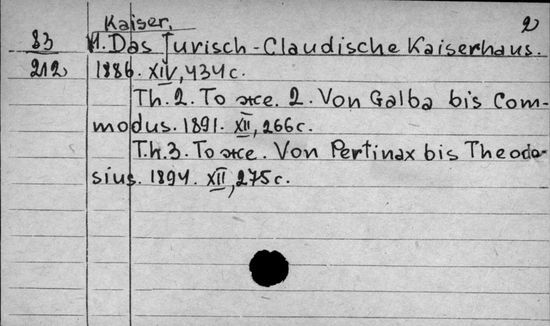 Kaiser.
2
83
1. Das Jurisch-Claudische Kaiserhaus.
212
1886. XIV, 434 c.
Th. 2. То же. 2. Von Galba bis Com-
modus. 1891. XII, 266 c.
Th. 3. То же. Von Pertinax bis Theodo-
sius. 1894. XII, 275 c.